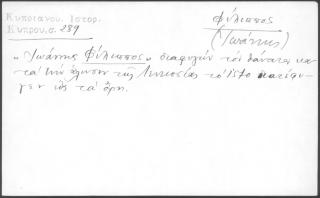 Κυπριανου. Ιστορ.
Κυπρου. σ. 289
Φίλιππος
(Ἰωάννης)
„Ἰωάννης Φίλιππος" διαφυγὼν τὸν θάνατον κα-
τὰ τὴν ἅλωσιν τῆς Λευκωσίας τὸ 1570 κατέφυ-
γεν εἰς τὰ ὄρη.